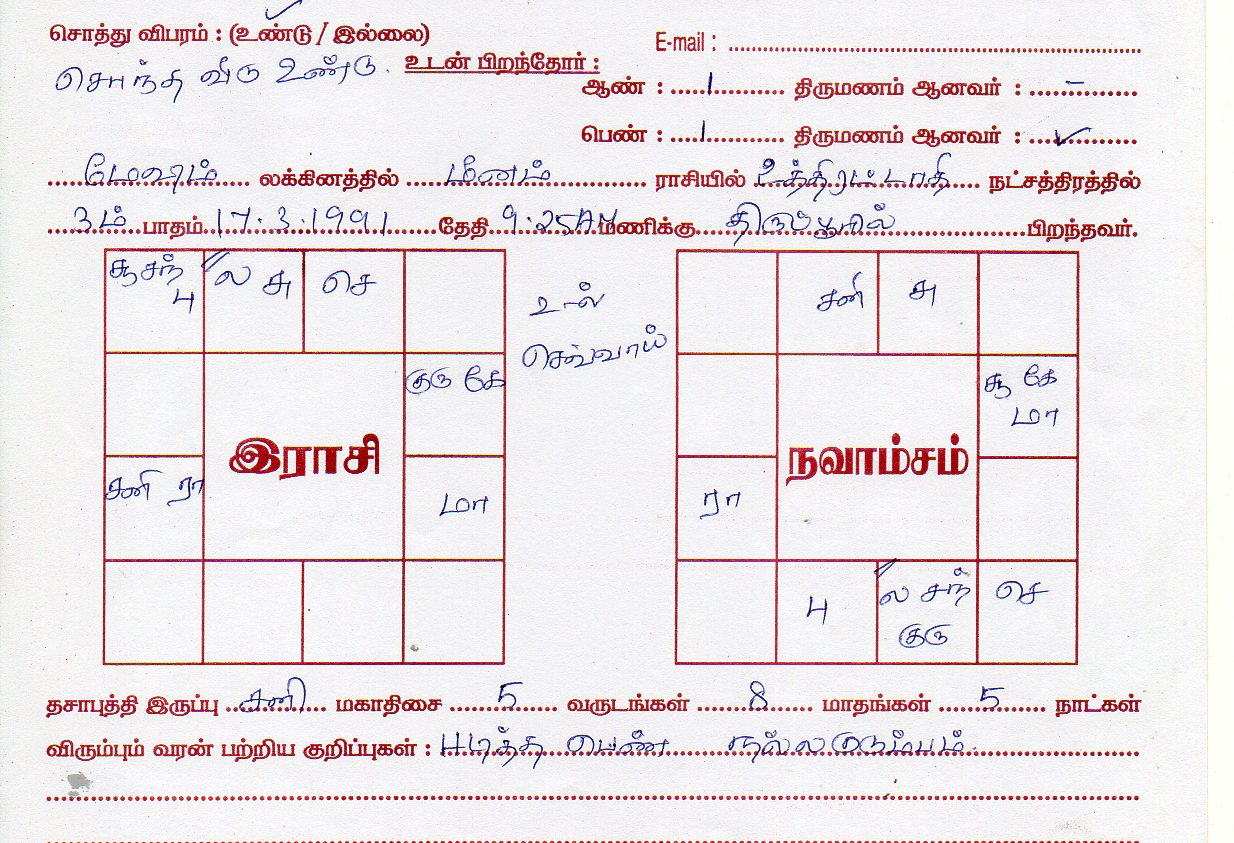 சொத்து விபரம் : (உண்டு / இல்லை)
E-mail :
சொந்த வீடு உண்டு.
உடன் பிறந்தோர் :
ஆண் : 1 திருமணம் ஆனவர் : –
பெண் : 1 திருமணம் ஆனவர் : ✓
மேஷம் லக்கினத்தில் மீனம் ராசியில் உத்திரட்டாதி நட்சத்திரத்தில்
3ம் பாதம் 17.3.1991 தேதி 9.25AM மணிக்கு திருப்பூரில் பிறந்தவர்.
சூ சந் பு
ல சு
செ
குரு கே
சனி ரா
மா
இராசி
செவ்வாய்
சனி
சு
சூ கே மா
ரா
பு
ல சந் குரு
செ
நவாம்சம்
தசாபுத்தி இருப்பு சனி மகாதிசை 5 வருடங்கள் 8 மாதங்கள் 5 நாட்கள்
விரும்பும் வரன் பற்றிய குறிப்புகள் : படித்த பெண் நல்ல குடும்பம்.